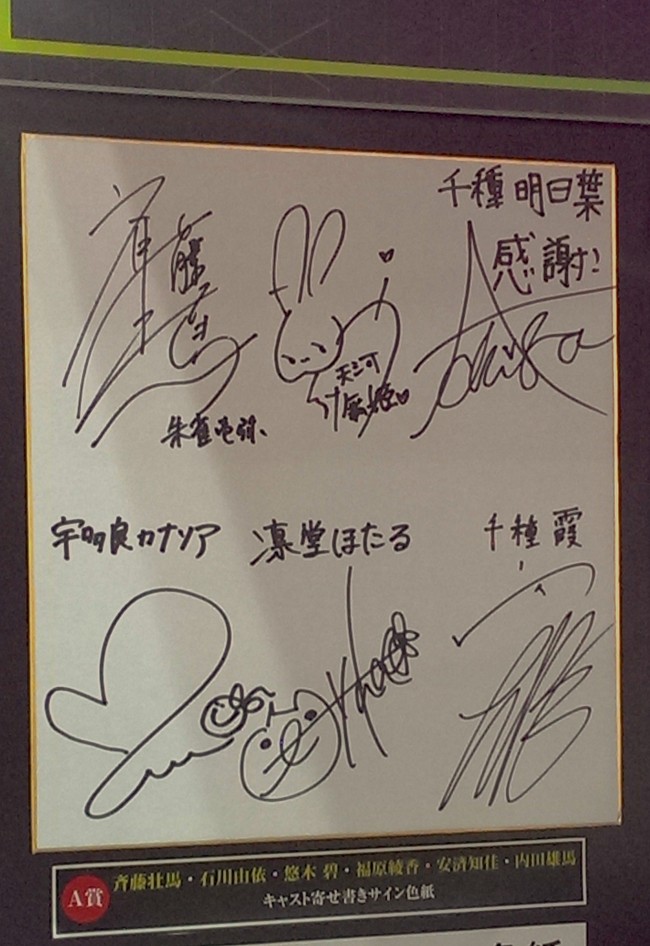 千種 明日葉
感謝！
朱雀壱弥、
天河
舞姫♡
宇多良カナリア
凛堂ほたる
千種 霞
A賞
斉藤壮馬・石川由依・悠木 碧・福原綾香・安済知佳・内田雄馬
キャスト寄せ書きサイン色紙